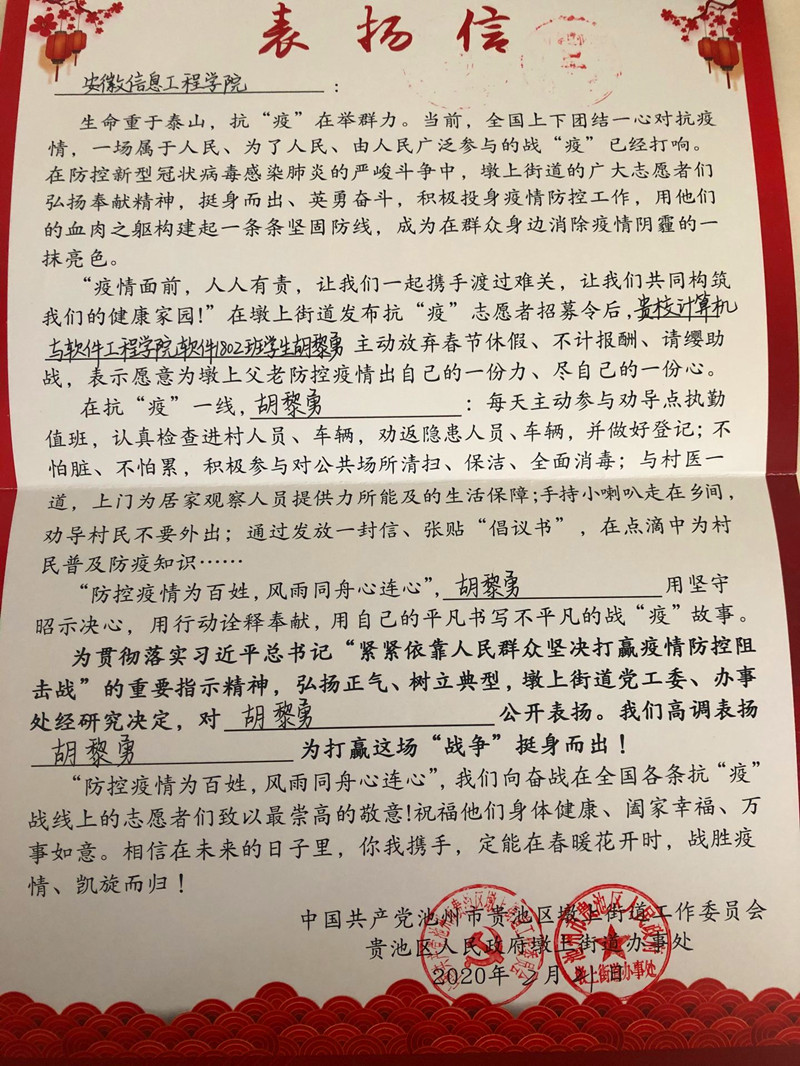 表扬信
安徽信息工程学院：
生命重于泰山，抗“疫”在举群力。当前，全国上下团结一心对抗疫
情，一场属于人民、为了人民、由人民广泛参与的战“疫”已经打响。
在防控新型冠状病毒感染肺炎的严峻斗争中，墩上街道的广大志愿者们
弘扬奉献精神，挺身而出、英勇奋斗，积极投身疫情防控工作，用他们
的血肉之躯构建起一条条坚固防线，成为在群众身边消除疫情阴霾的一
抹亮色。
“疫情面前，人人有责，让我们一起携手渡过难关，让我们共同构筑
我们的健康家园！”在墩上街道发布抗“疫”志愿者招募令后，贵校计算机
与软件工程学院软件1802班学生胡黎勇主动放弃春节休假、不计报酬、请缨助
战，表示愿意为墩上父老防控疫情出自己的一份力、尽自己的一份心。
在抗“疫”一线，胡黎勇：每天主动参与劝导点执勤
值班，认真检查进村人员、车辆，劝返隐患人员、车辆，并做好登记；不
怕脏、不怕累，积极参与对公共场所清扫、保洁、全面消毒；与村医一
道，上门为居家观察人员提供力所能及的生活保障；手持小喇叭走在乡间，
劝导村民不要外出；通过发放一封信、张贴“倡议书”，在点滴中为村
民普及防疫知识……
“防控疫情为百姓，风雨同舟心连心”，胡黎勇用坚守
昭示决心，用行动诠释奉献，用自己的平凡书写不平凡的战“疫”故事。
为贯彻落实习近平总书记“紧紧依靠人民群众坚决打赢疫情防控阻
击战”的重要指示精神，弘扬正气、树立典型，墩上街道党工委、办事
处经研究决定，对胡黎勇公开表扬。我们高调表扬
胡黎勇为打赢这场“战争”挺身而出！
“防控疫情为百姓，风雨同舟心连心”，我们向奋战在全国各条抗“疫”
战线上的志愿者们致以最崇高的敬意！祝福他们身体健康、阖家幸福、万
事如意。相信在未来的日子里，你我携手，定能在春暖花开时，战胜疫
情、凯旋而归！
中国共产党池州市贵池区墩上街道工作委员会
贵池区人民政府墩上街道办事处
2020年2月 日